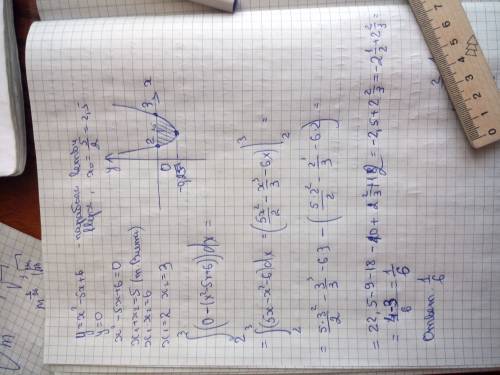 y = x² - 5x + 6 - парабола, ветви вверх, x₀ = 5/2 = 2,5
y = 0
x² - 5x + 6 = 0
x₁ + x₂ = 5 (т. Виета)
x₁ · x₂ = 6
x₁ = 2 x₂ = 3
y
x
0
2
3
-0,25
∫₂³ (0 - (x² - 5x + 6)) dx =
= ∫₂³ (5x - x² - 6) dx = (5x²/2 - x³/3 - 6x) |₂³ =
= 5·3²/2 - 3³/3 - 6·3 - (5·2²/2 - 2³/3 - 6·2) =
= 22,5 - 9 - 18 - 10 + 2 2/3 + 12 = -2,5 + 2 2/3 = -2 1/2 + 2 2/3 =
= 4-3/6 = 1/6
Ответ: 1/6
0 1 2 3 4 5 6 7